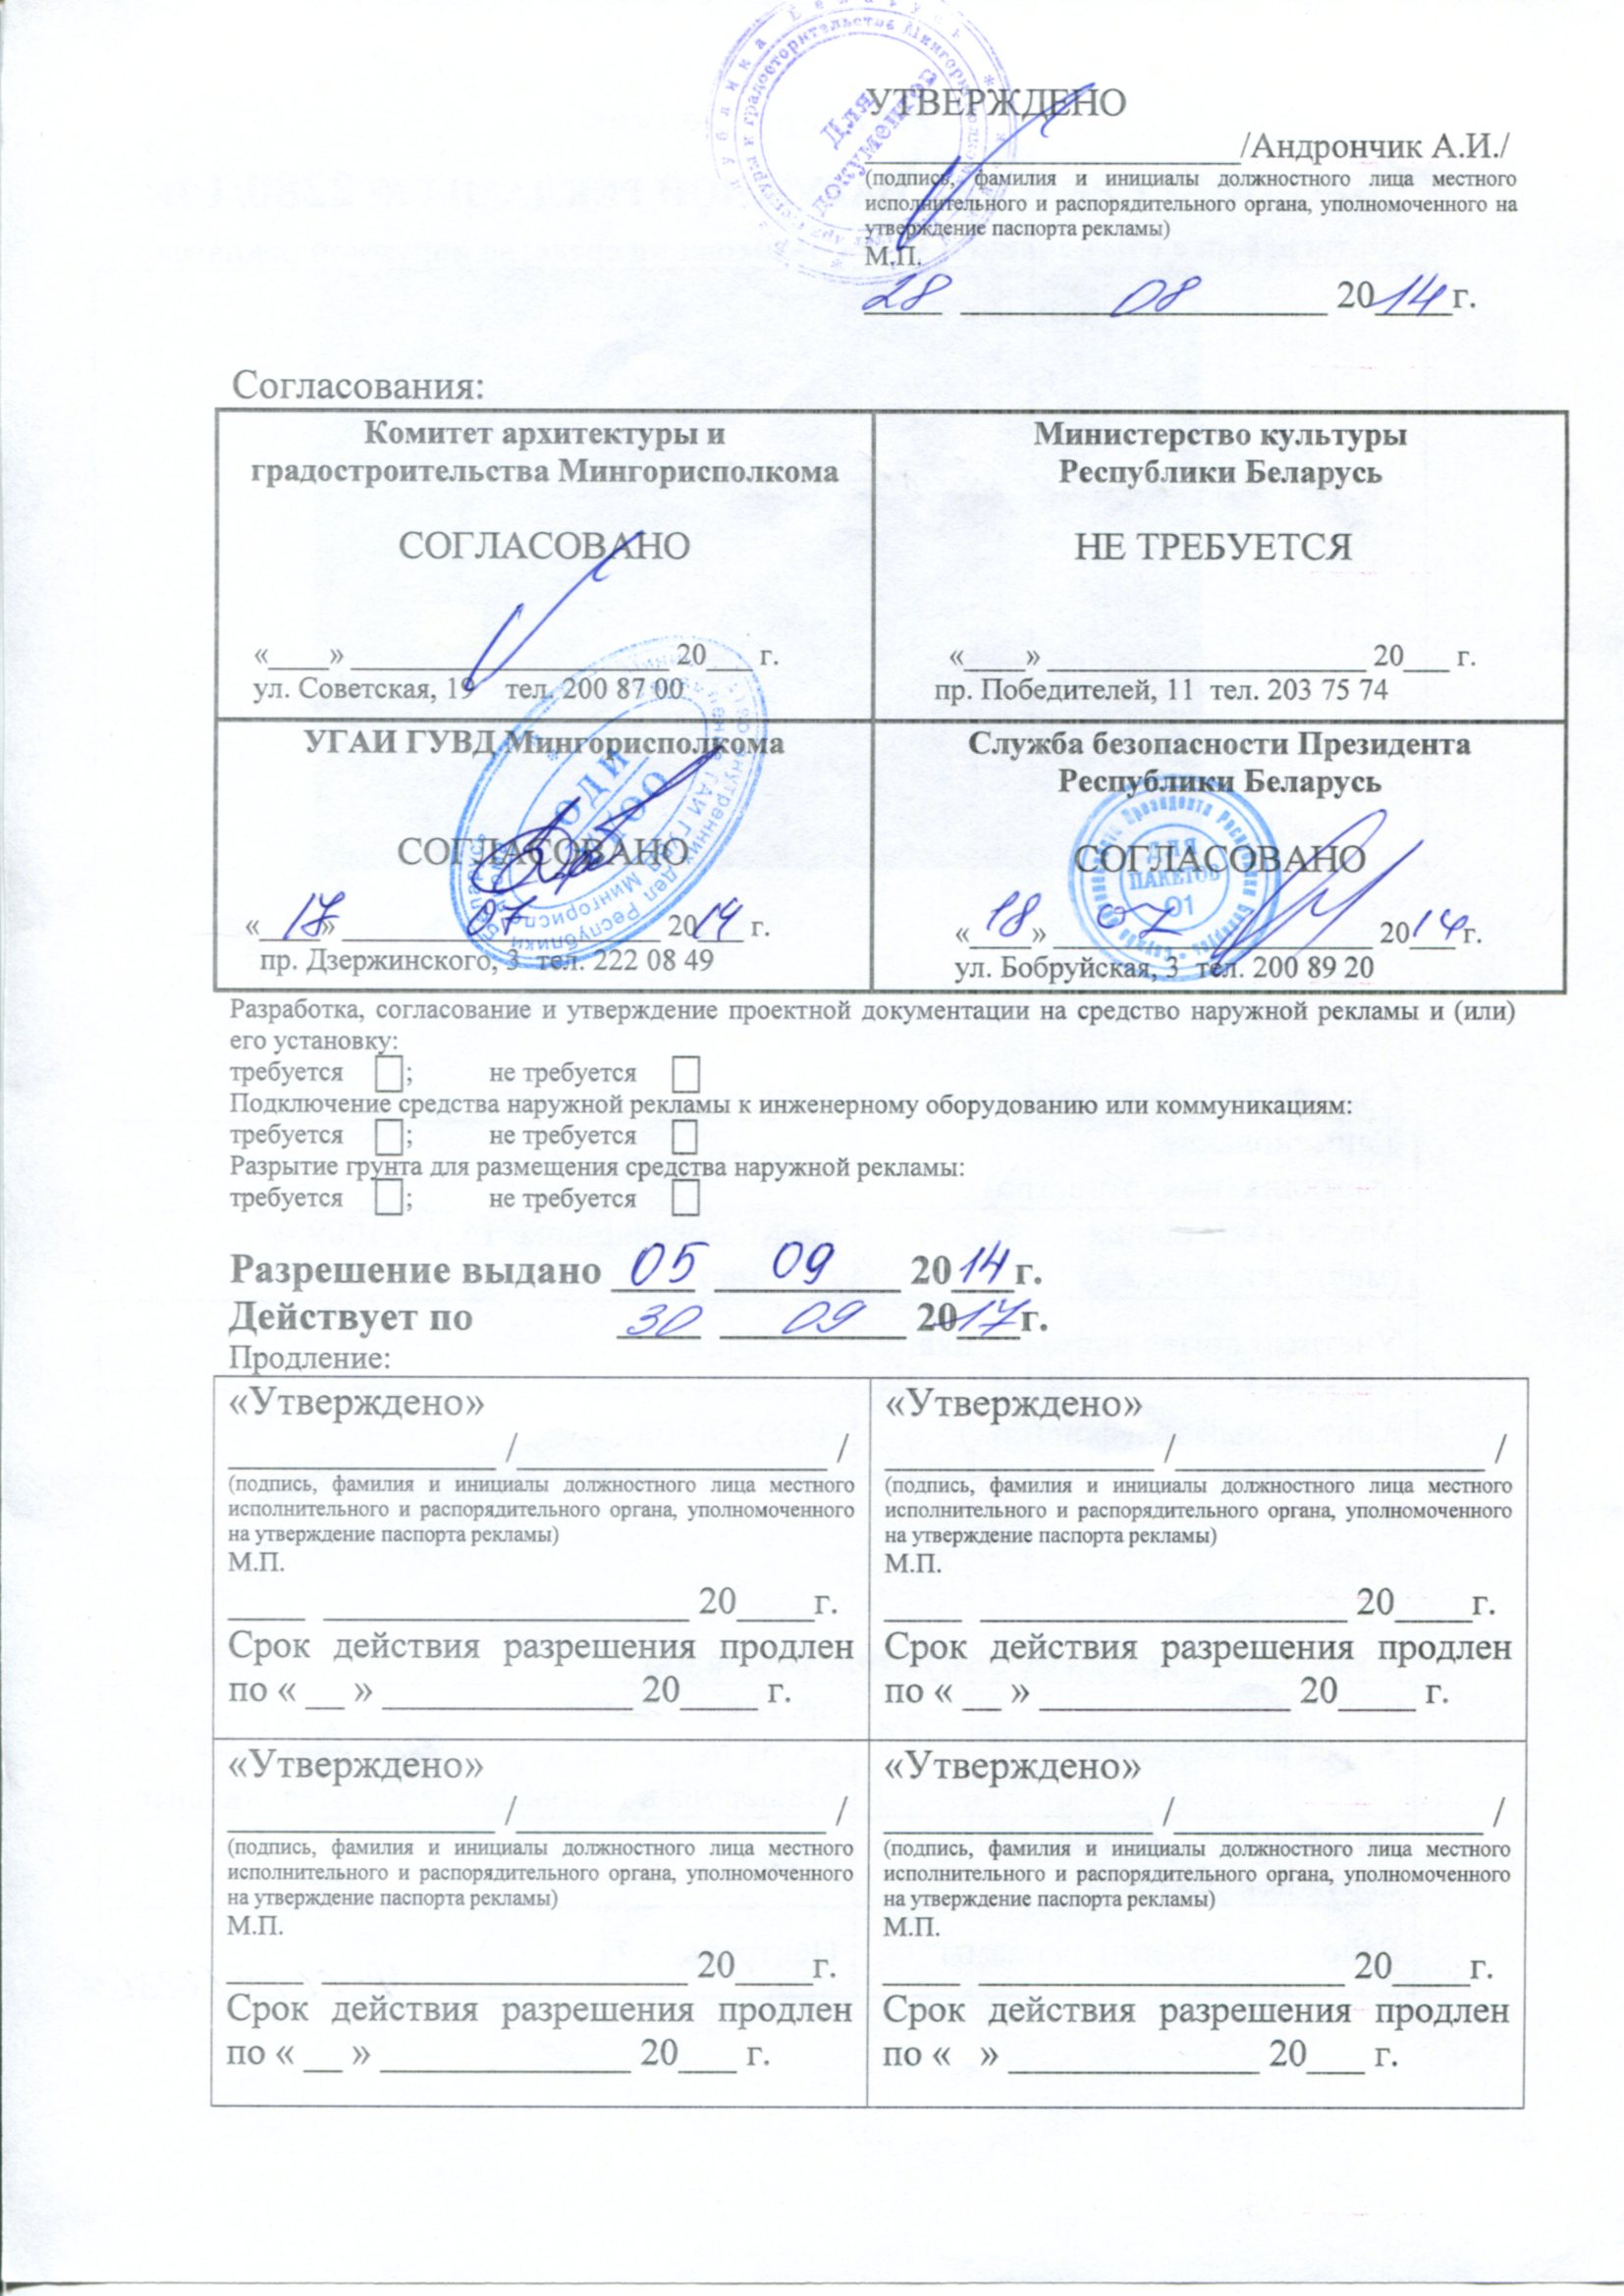 УТВЕРЖДЕНО
____________________/Андрончик А.И./
(подпись, фамилия и инициалы должностного лица местного
исполнительного и распорядительного органа, уполномоченного на
утверждение паспорта рекламы)
М.П.
28 08 2014 г.
Для документов
Согласования:
Комитет архитектуры и
градостроительства Мингорисполкома
СОГЛАСОВАНО
«____» ____________________ 20___ г.
ул. Советская, 19 тел. 200 87 00
Министерство культуры
Республики Беларусь
НЕ ТРЕБУЕТСЯ
«____» ____________________ 20___ г.
пр. Победителей, 11 тел. 203 75 74
УГАИ ГУВД Мингорисполкома
СОГЛАСОВАНО
«17» 07 2014 г.
пр. Дзержинского, 3 тел. 222 08 49
Служба безопасности Президента
Республики Беларусь
СОГЛАСОВАНО
ДЛЯ
ПАКЕТОВ
01
«18» 07 2014 г.
ул. Бобруйская, 3 тел. 200 89 20
Разработка, согласование и утверждение проектной документации на средство наружной рекламы и (или)
его установку:
требуется ; не требуется
Подключение средства наружной рекламы к инженерному оборудованию или коммуникациям:
требуется ; не требуется
Разрытие грунта для размещения средства наружной рекламы:
требуется ; не требуется
Разрешение выдано 05 09 2014 г.
Действует по 30 09 2017 г.
Продление:
«Утверждено»
______________ /________________ /
(подпись, фамилия и инициалы должностного лица местного
исполнительного и распорядительного органа, уполномоченного
на утверждение паспорта рекламы)
М.П.
____ ___________________ 20____г.
Срок действия разрешения продлен
по « __ » _____________ 20____ г.
«Утверждено»
______________ /________________ /
(подпись, фамилия и инициалы должностного лица местного
исполнительного и распорядительного органа, уполномоченного
на утверждение паспорта рекламы)
М.П.
____ ___________________ 20____г.
Срок действия разрешения продлен
по « __ » _____________ 20____ г.
«Утверждено»
______________ /________________ /
(подпись, фамилия и инициалы должностного лица местного
исполнительного и распорядительного органа, уполномоченного
на утверждение паспорта рекламы)
М.П.
____ ___________________ 20____г.
Срок действия разрешения продлен
по « __ » _____________ 20___ г.
«Утверждено»
______________ /________________ /
(подпись, фамилия и инициалы должностного лица местного
исполнительного и распорядительного органа, уполномоченного
на утверждение паспорта рекламы)
М.П.
____ ___________________ 20____г.
Срок действия разрешения продлен
по « » _____________ 20___ г.